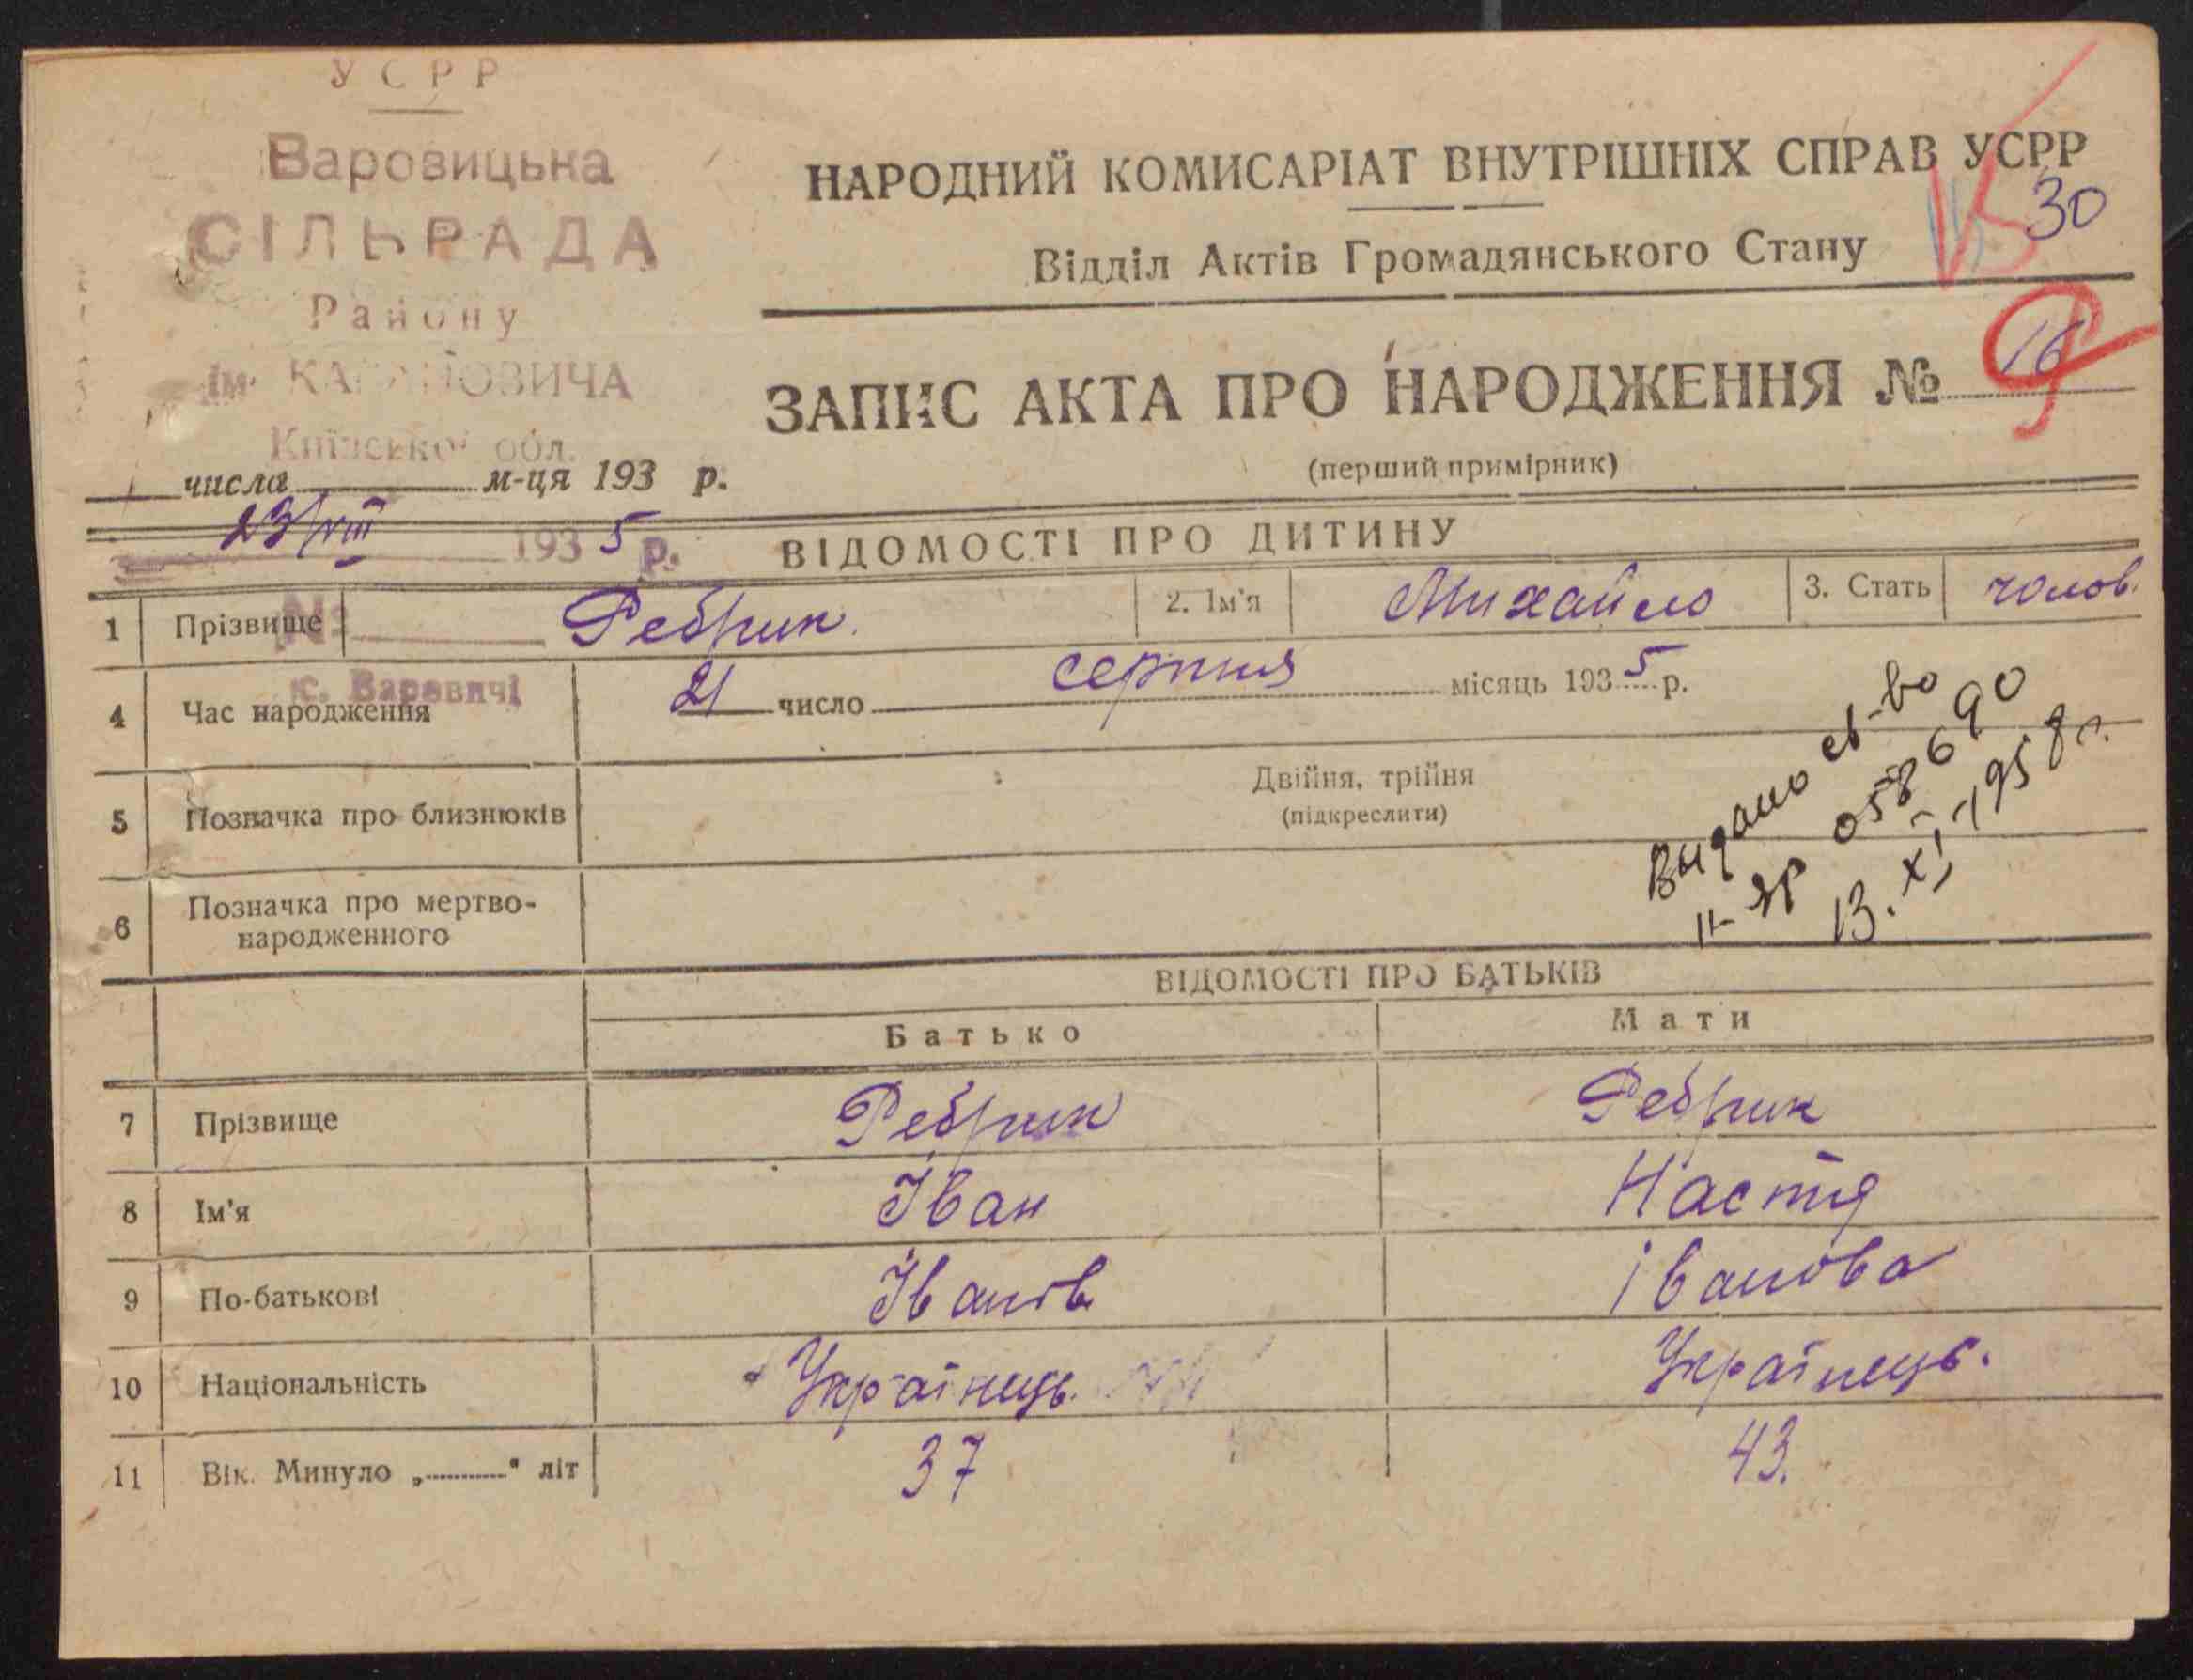 УСРР
Варовицька
СІЛЬРАДА
Району
ім. КАГАНОВИЧА
Київської обл.
числа м-ця 193 р.
23/VIII 1935 р.
№
с. Варевичі
НАРОДНИЙ КОМИСАРІАТ ВНУТРІШНІХ СПРАВ УСРР
30
Відділ Актів Громадянського Стану
ЗАПИС АКТА ПРО НАРОДЖЕННЯ № 16
(перший примірник)
ВІДОМОСТІ ПРО ДИТИНУ
1 Прізвище Ребрик. 2. Ім'я Михайло 3. Стать чолов.
4 Час народження 21 число серпня місяць 1935 р.
5 Позначка про близнюків Двійня, трійня
(підкреслити)
6 Позначка про мертво-
народженного
Видано св-во
II-ЯР 058690
13.XI-1958г.
ВІДОМОСТІ ПРО БАТЬКІВ
Батько Мати
7 Прізвище Ребрик Ребрик
8 Ім'я Іван Настя
9 По-батькові Іванів Іванова
10 Національність Українець. Українець.
11 Вік. Минуло „ " літ 37 43.